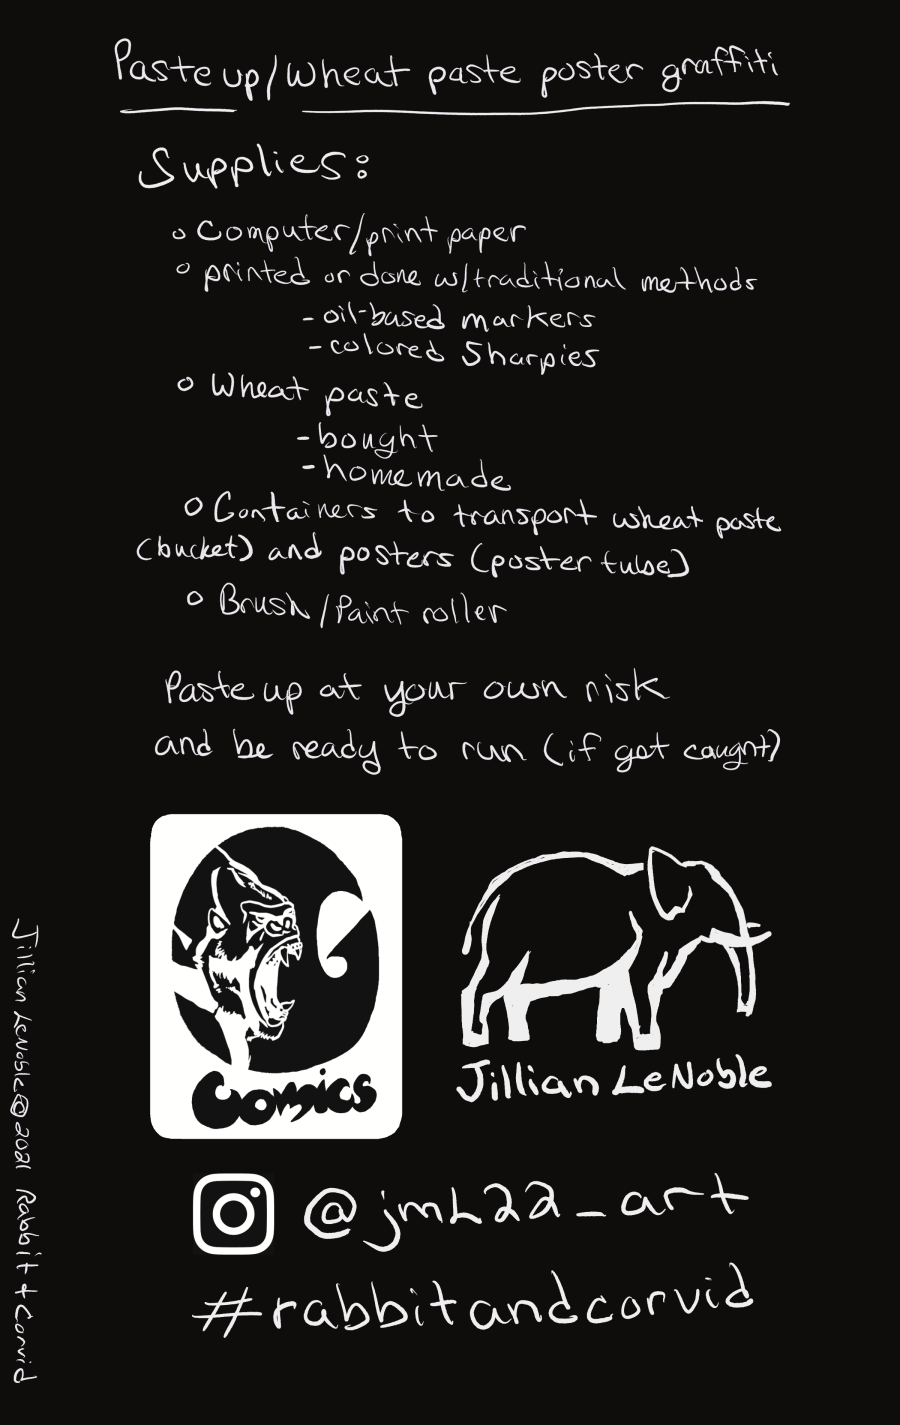 Paste up/Wheat paste poster graffiti
Supplies:
o Computer/print paper
o printed or done w/traditional methods
- oil-based markers
- colored Sharpies
o Wheat paste
- bought
- homemade
o Containers to transport wheat paste
(bucket) and posters (poster tube)
o Brush/Paint roller
Paste up at your own risk
and be ready to run (if get caught)
Comics
Jillian LeNoble
@jmL22_art
#rabbitandcorvid
Jillian LeNoble © 2021 Rabbit + Corvid